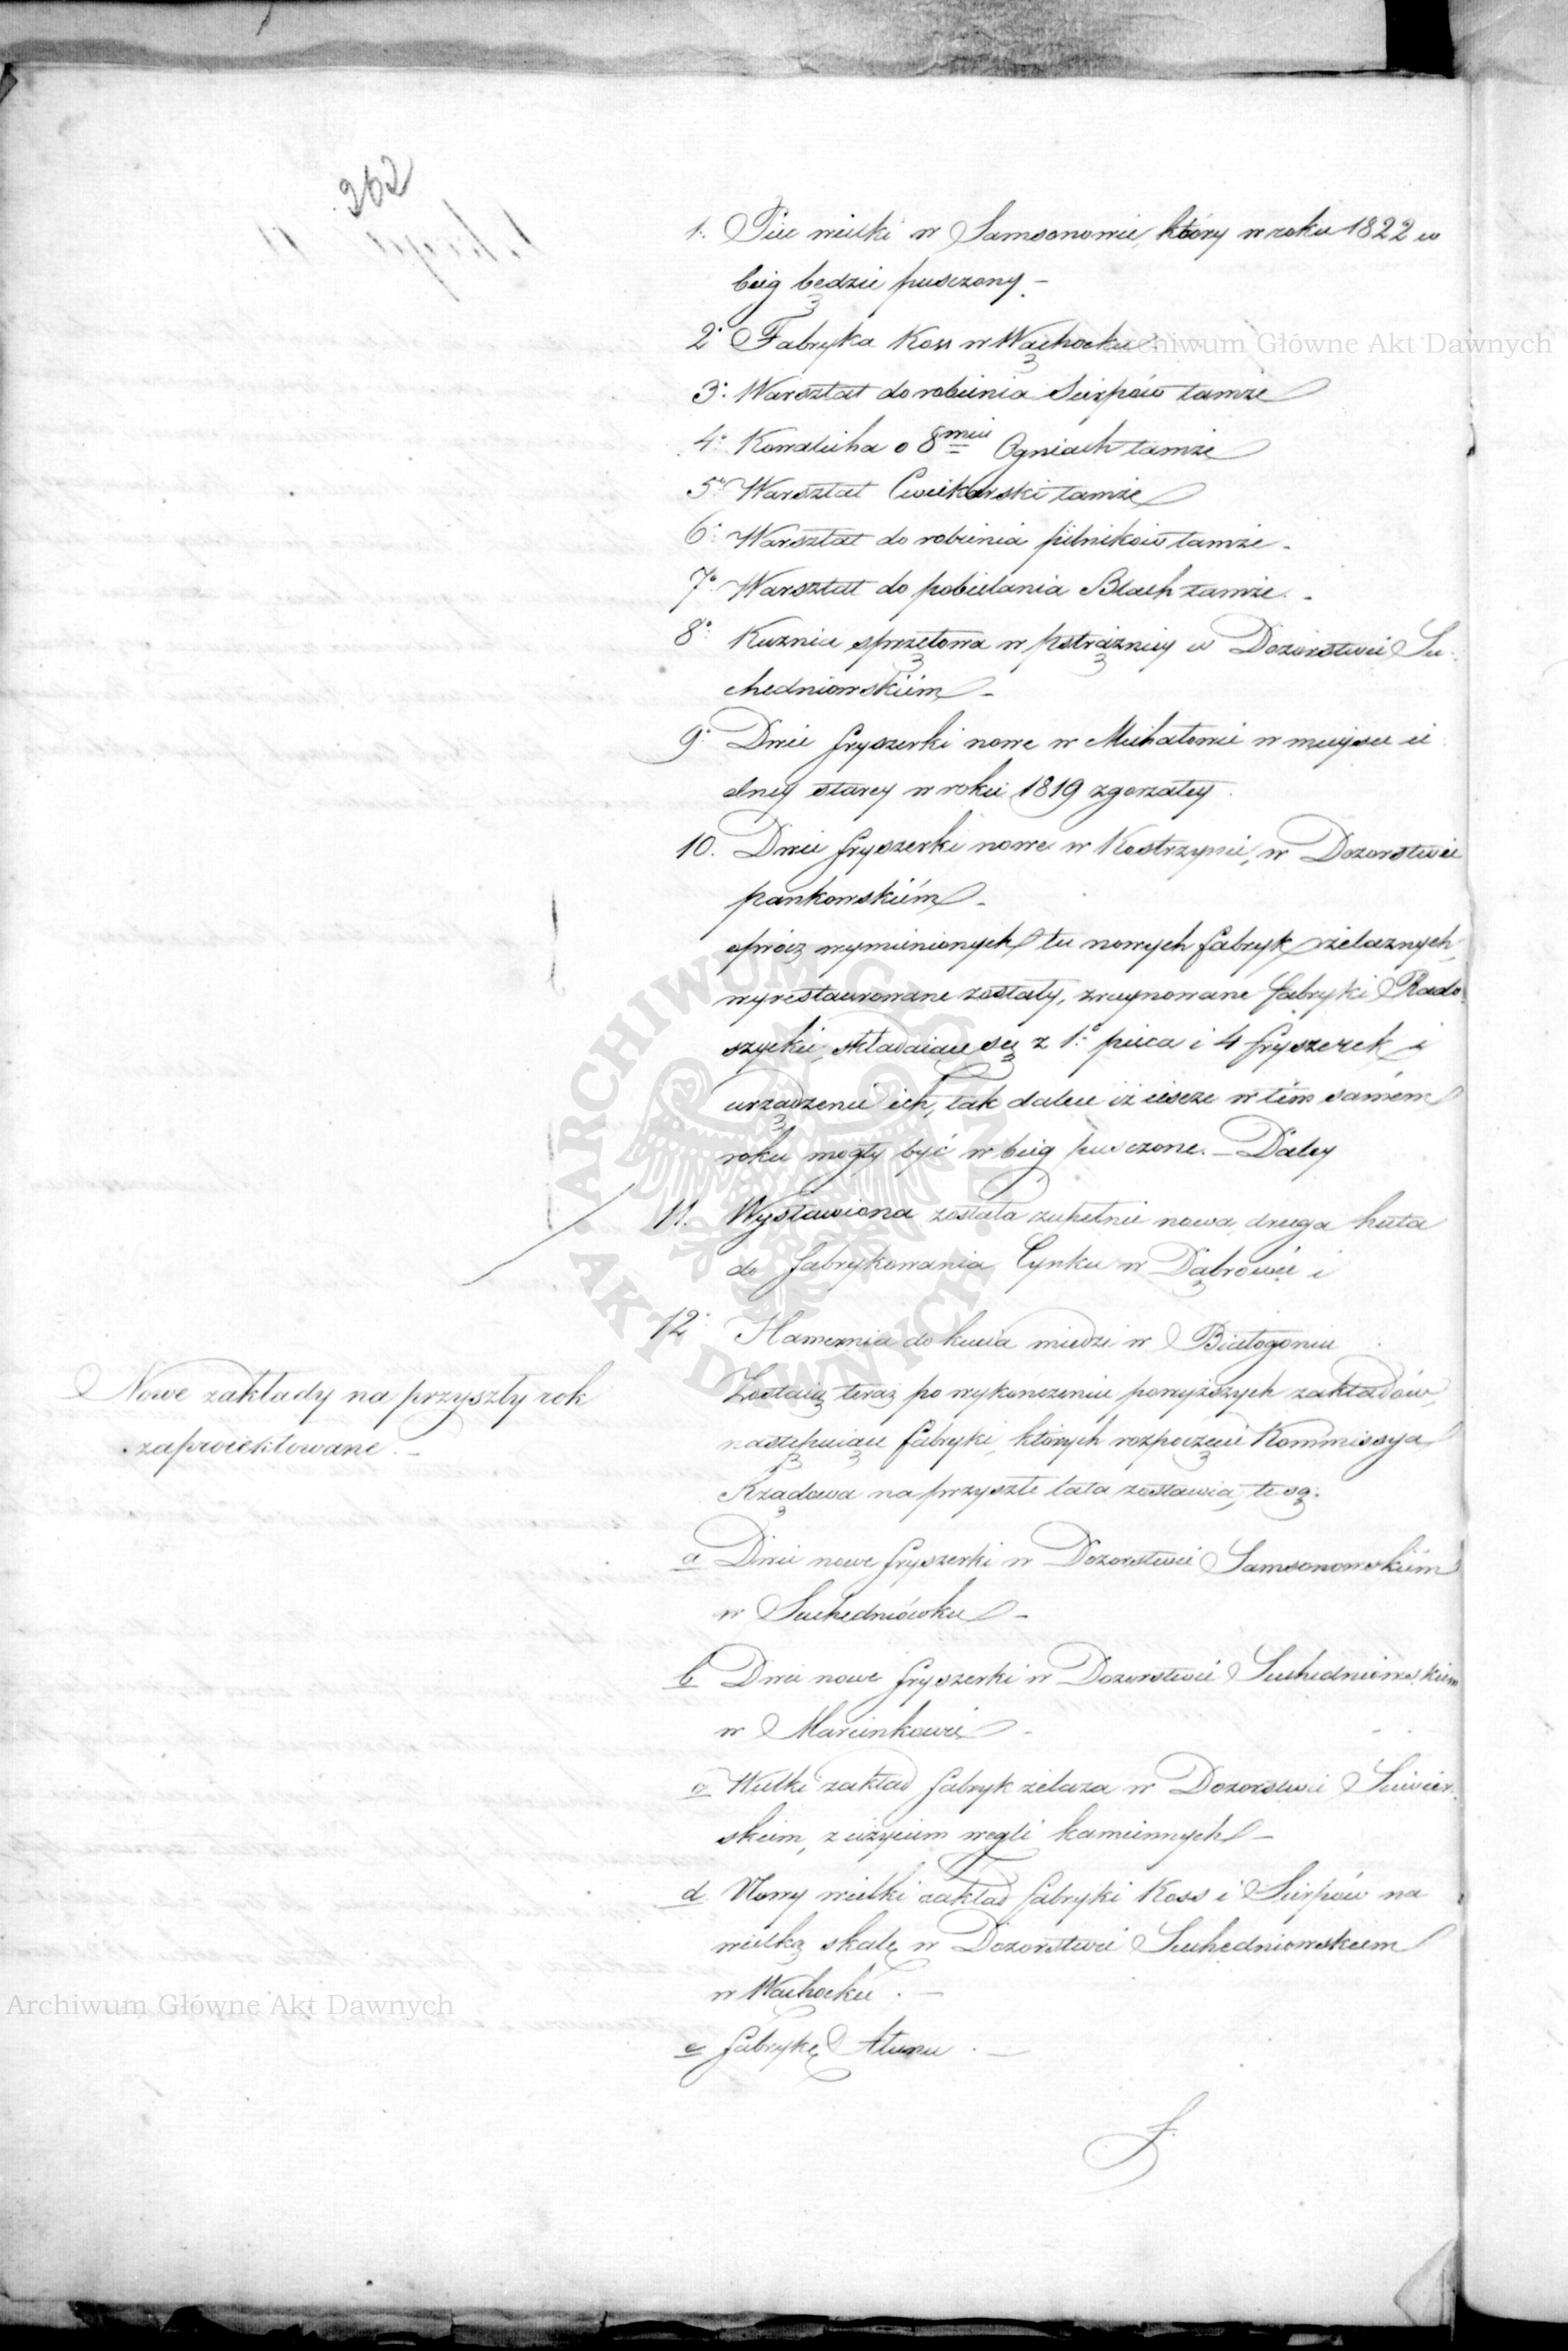 262
1. Piec wielki w Samsonowie, który w roku 1822 w
bieg będzie pusczony –
2. Fabryka Koss w Wąchocku
3. Warsztat do robienia Sierpów tamże
4. Kowalicha o 8miu Ogniach tamże
5. Warsztat Cwiekarski tamże
6. Warsztat do robienia pilników tamże –
7. Warsztat do pobielania Blach tamże. –
8. Kuznia sprzętowa w pstrążnicy w Dozorstwie Su-
chedniowskiém –
9. Dwie fryszerki nowe w Michałowie w mieyscu ie
dney starey w roku 1819 zgorzałey.
10. Dwie fryszerki nowe w Kostrzynie, w Dozorstwie
pankowskiém –
oprócz wymienionych tu nowych fabryk żelaznych,
wyrestaurowane zostały, zruynowane fabryki Rado-
szyckie, składaiące się z 1. pieca i 4 fryszerek i
urządzenie ich, tak dalece iż ieszcze w tém samém
roku mogły być w bieg pusczone. – Daley
11. Wystawiona została zupełnie nowa druga huta
do fabrykowania Cynku w Dąbrowie i
12. Hamernia do kucia miedzi w Białogonie
Nowe zakłady na przyszły rok
zaproiektowane. –
Zostaią teraz po wykonczeniu powyższych zakładów,
następuiące fabryki, których rozpoczęcie Kommissya
Rządowa na przyszłe lata zostawia, te są.
a Dwie nowe fryszerki w Dozorstwie Samsonowskiém
w Suchedniówku –
b Dwie nowe fryszerki w Dozorstwie Suchedniowskiem
w Marcinkowie –
c Wielki zakład fabryk żelaza w Dozorstwie Siewier-
skiem, z użyciem węgli kamiennych –
d. Nowy wielki zakład fabryki Koss i Sierpów na
wielką skalę w Dozorstwie Suchedniowskiem
w Wąchocku. –
e fabrykę Ałunu. –
Archiwum Główne Akt Dawnych
Archiwum Główne Akt Dawnych
ARCHIWUM GŁÓWNE AKT DAWNYCH